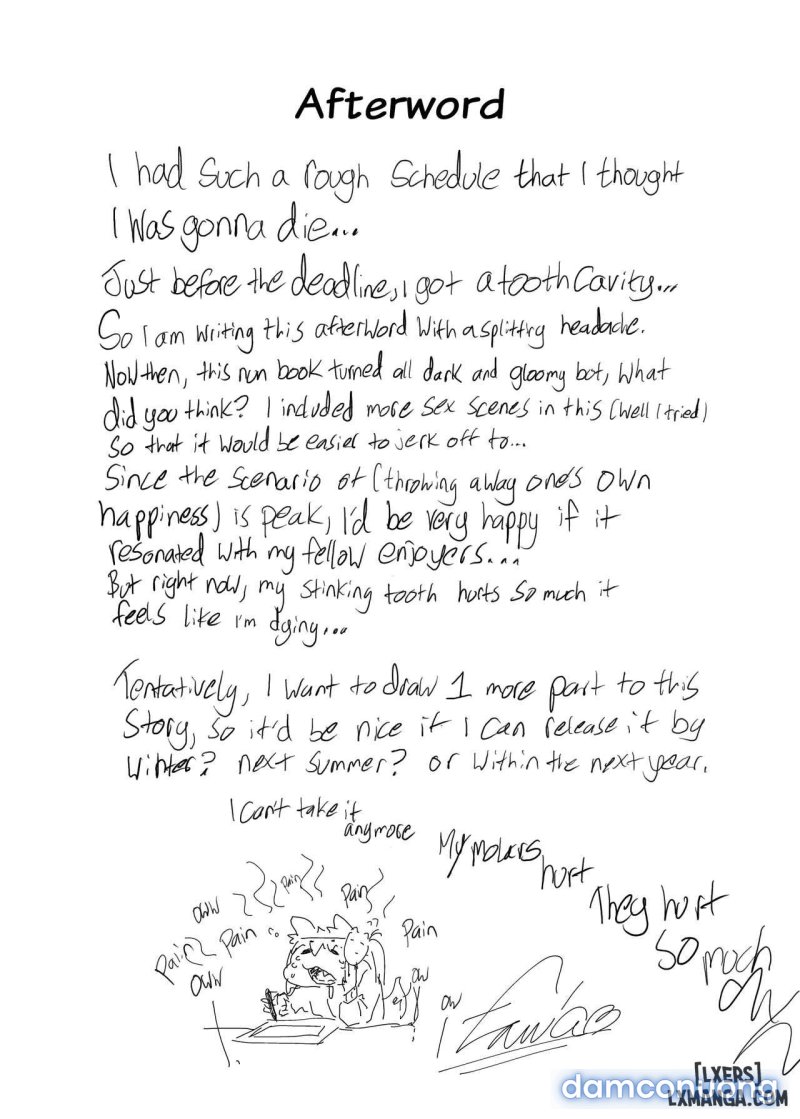 Afterword
I had such a rough schedule that I thought
I was gonna die...
Just before the deadline, I got a tooth cavity...
So I am writing this afterword with a splittiry headache.
Now then, this nun book turned all dark and gloomy bot, what
did you think? I included more sex scenes in this (well I tried)
so that it would be easier to jerk off to...
Since the scenario of (throwing away one's own
happiness) is peak, I'd be very happy if it
resonated with my fellow enjoyers...
But right now, my stinking tooth hurts so much it
feels like I'm dying...
Tentatively, I want to draw 1 more part to this
story, so it'd be nice if I can release it by
winter? next summer? or within the next year.
I can't take it
anymore
My molars
hurt
They hurt
so much
OW
Pain
OWW
Pain
Pain
Pain
Pain
OWW
OW
OW
[LXERS]
damconuong
LXMANGA.COM